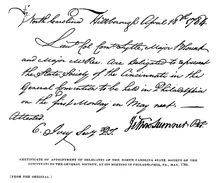 North Carolina Hillsborough April 13th 1784
Lieut Col Comt Lytle, Major Blount
and Major McRee Are Delegated to represent
the State Society of the Cincinnati in the
General Convention to be held in Philadelphia
on the first Monday in May next
Attested
C. Ivey Secy Jethro Sumner Prt.
CERTIFICATE OF APPOINTMENT OF DELEGATES OF THE NORTH CAROLINA STATE SOCIETY OF THE
CINCINNATI TO THE GENERAL SOCIETY, AT ITS MEETING IN PHILADELPHIA, PA., MAY, 1784.
[FROM THE ORIGINAL.]